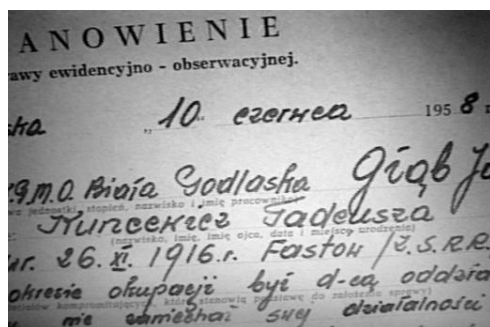 ANOWIENIE
awy ewidencyjno - obserwacyjnej.
ska „10" czerwca 1958 r
M.O. Biała Podlaska Głąb Jó
wa jednostki, stopień, nazwisko i imię pracownika)
Kuncewicz Tadeusza
(nazwisko, imię, imię ojca, data i miejsce urodzenia)
ur. 26.XI.1916.r. Fastow /Z.S.R.R.
okresie okupacji był d-cą oddzia
kompromitujących, które stanowią podstawę do założenia sprawy)
nie zaniechał swej działalności